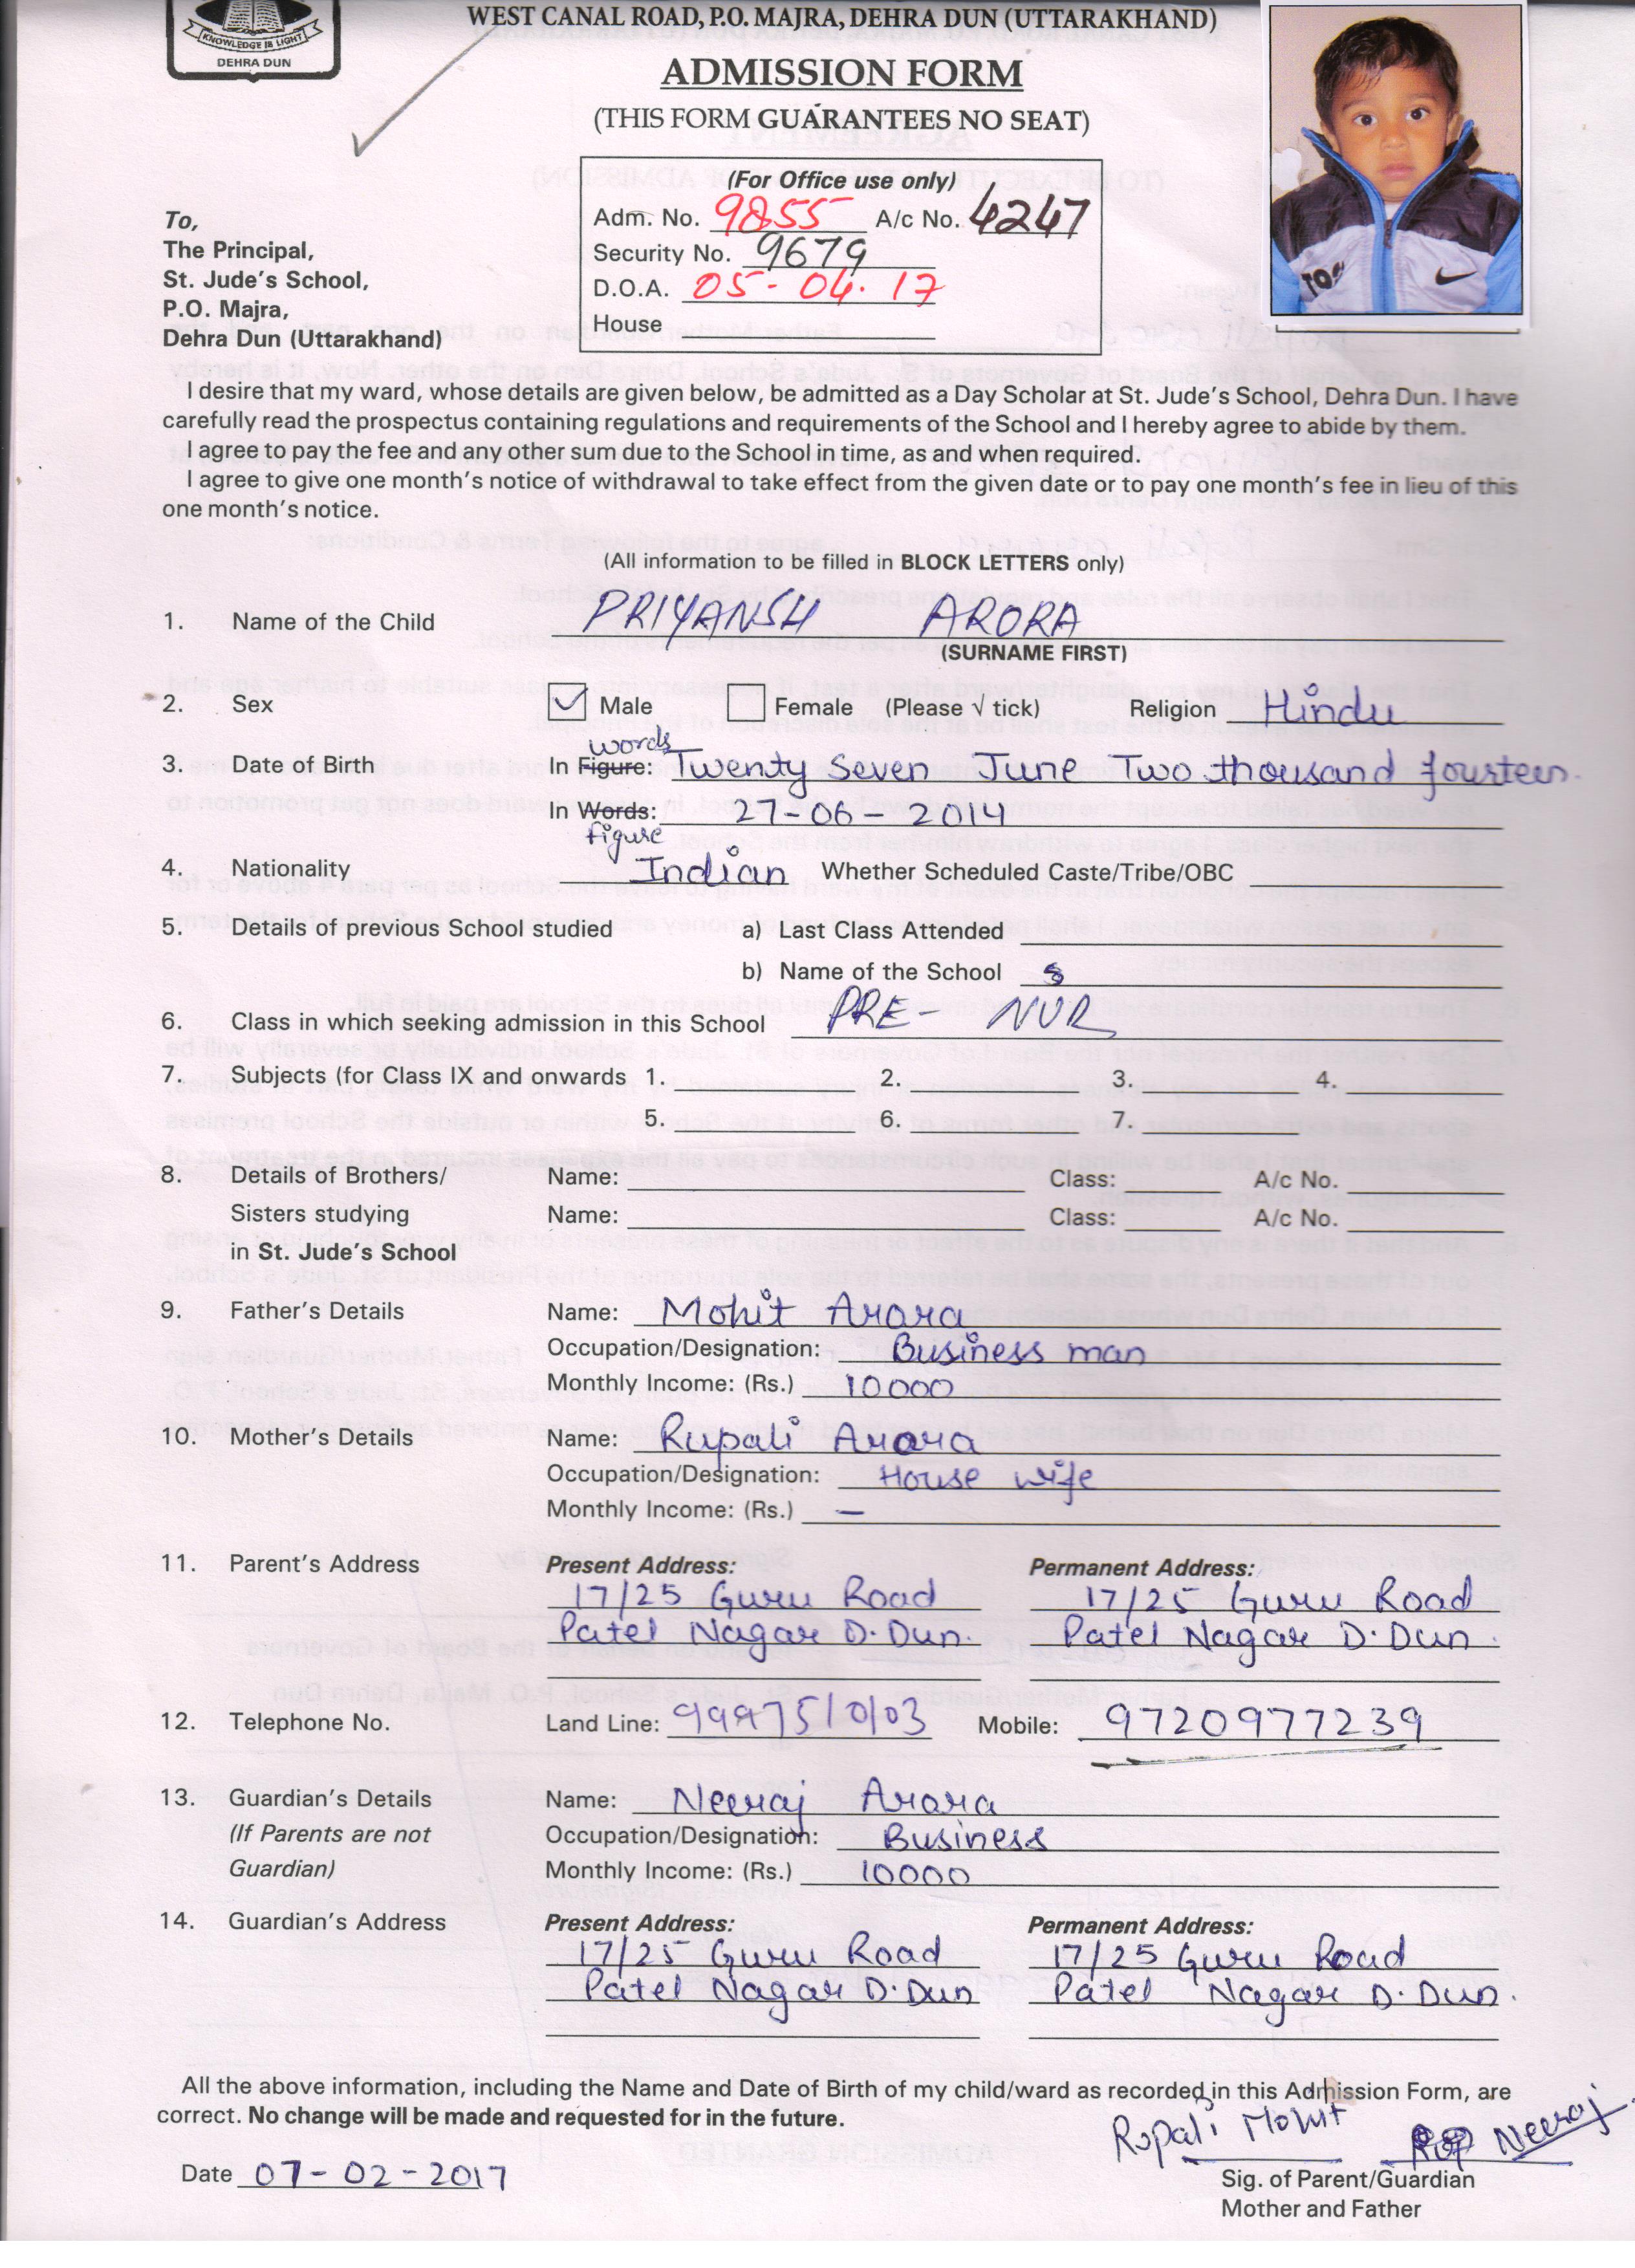 KNOWLEDGE IS LIGHT
DEHRA DUN
WEST CANAL ROAD, P.O. MAJRA, DEHRA DUN (UTTARAKHAND)
ADMISSION FORM
(THIS FORM GUARANTEES NO SEAT)
(For Office use only)
Adm. No. 9855 A/c No. 4247
Security No. 9679
D.O.A. 05-04.17
House
To,
The Principal,
St. Jude's School,
P.O. Majra,
Dehra Dun (Uttarakhand)
I desire that my ward, whose details are given below, be admitted as a Day Scholar at St. Jude's School, Dehra Dun. I have
carefully read the prospectus containing regulations and requirements of the School and I hereby agree to abide by them.
I agree to pay the fee and any other sum due to the School in time, as and when required.
I agree to give one month's notice of withdrawal to take effect from the given date or to pay one month's fee in lieu of this
one month's notice.
(All information to be filled in BLOCK LETTERS only)
1. Name of the Child PRIYANSH ARORA
(SURNAME FIRST)
2. Sex Male Female (Please √ tick) Religion Hindu
words
3. Date of Birth In Figure: Twenty Seven June Two thousand fourteen.
In Words: 27-06-2014
figure
4. Nationality Indian Whether Scheduled Caste/Tribe/OBC
5. Details of previous School studied a) Last Class Attended
b) Name of the School
6. Class in which seeking admission in this School PRE- NUR
7. Subjects (for Class IX and onwards 1. 2. 3. 4.
5. 6. 7.
8. Details of Brothers/ Name: Class: A/c No.
Sisters studying Name: Class: A/c No.
in St. Jude's School
9. Father's Details Name: Mohit Arora
Occupation/Designation: Business man
Monthly Income: (Rs.) 10000
10. Mother's Details Name: Rupali Arora
Occupation/Designation: House wife
Monthly Income: (Rs.) —
11. Parent's Address Present Address: Permanent Address:
17/25 Guru Road 17/25 Guru Road
Patel Nagar D.Dun. Patel Nagar D.Dun.
12. Telephone No. Land Line: 9997510103 Mobile: 9720977239
13. Guardian's Details Name: Neeraj Arora
(If Parents are not Occupation/Designation: Business
Guardian) Monthly Income: (Rs.) 10000
14. Guardian's Address Present Address: Permanent Address:
17/25 Guru Road 17/25 Guru Road
Patel Nagar D.Dun Patel Nagar D.Dun.
All the above information, including the Name and Date of Birth of my child/ward as recorded in this Admission Form, are
correct. No change will be made and requested for in the future.
Rupali Mohit Neeraj
Date 07-02-2017
Sig. of Parent/Guardian
Mother and Father